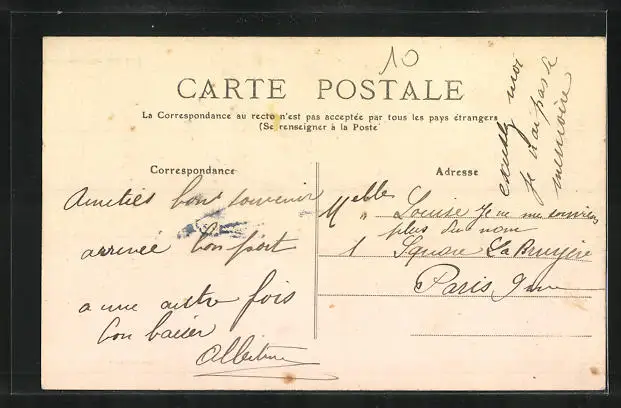 10
CARTE POSTALE
La Correspondance au recto n'est pas acceptée par tous les pays étrangers
(Se renseigner à la Poste
Correspondance
Adresse
Amitiés bons souvenir
arrivée bon port
a une autre fois
bon baiser
Albertine
Melle Louise Je ne me souviens
plus du nom
1 Square La Bruyère
Paris 9me
excusez moi
je n'ai pas de
memoire